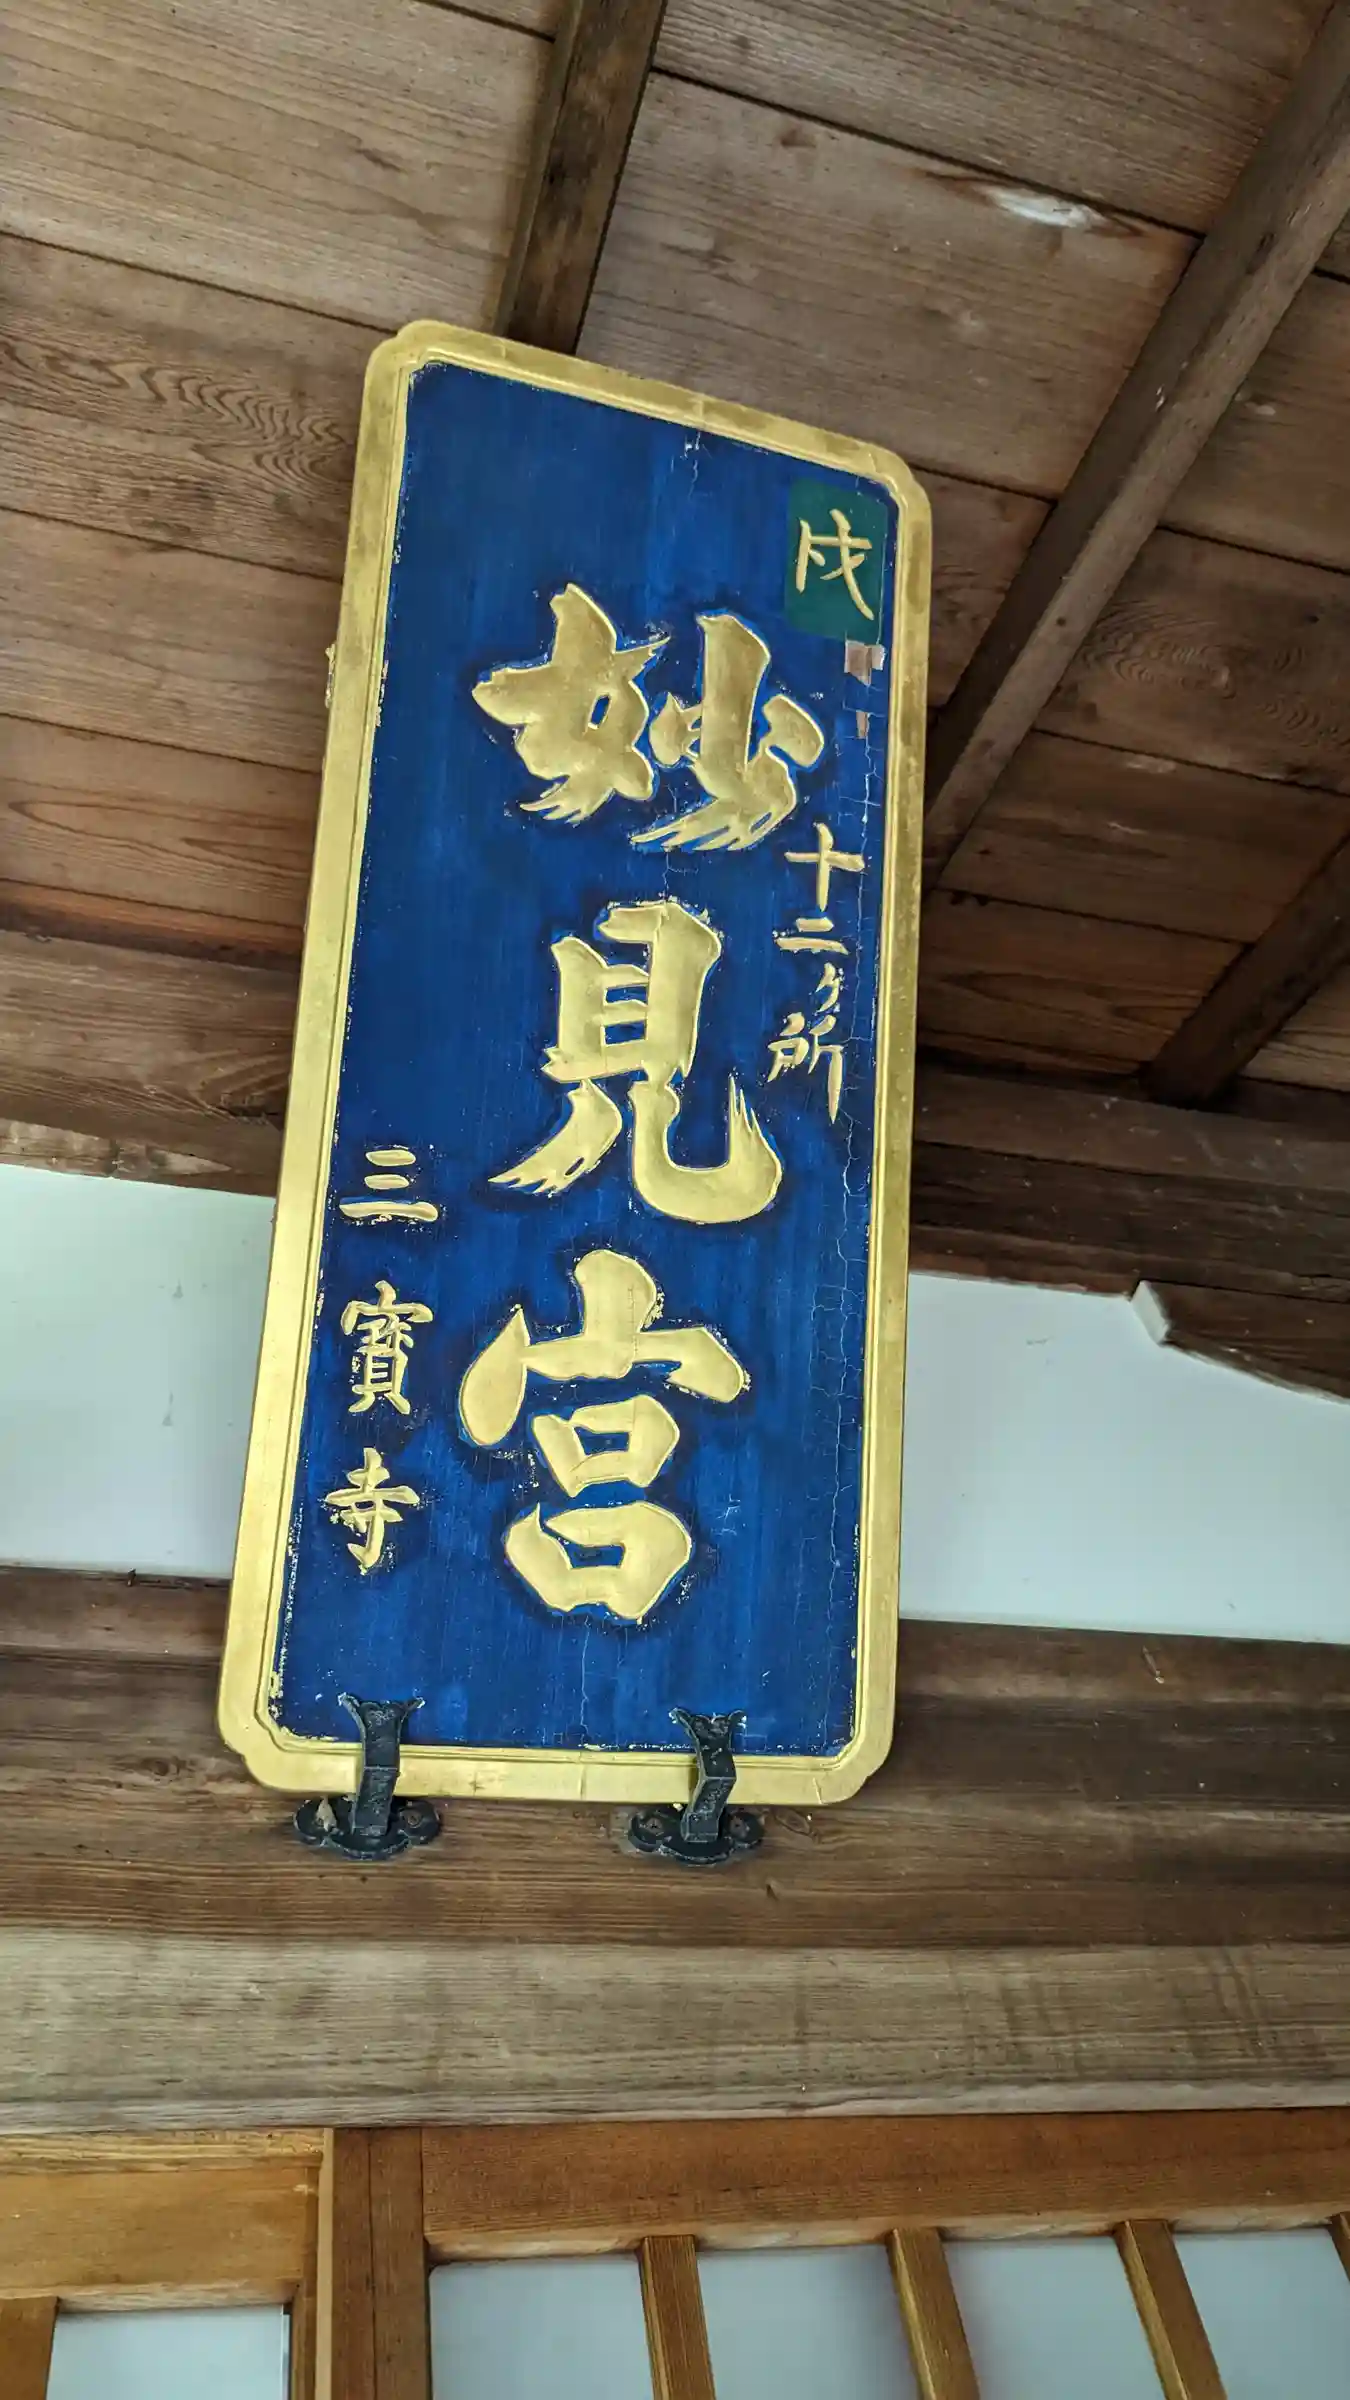 戌
十二ヶ所
妙見宮
三寳寺